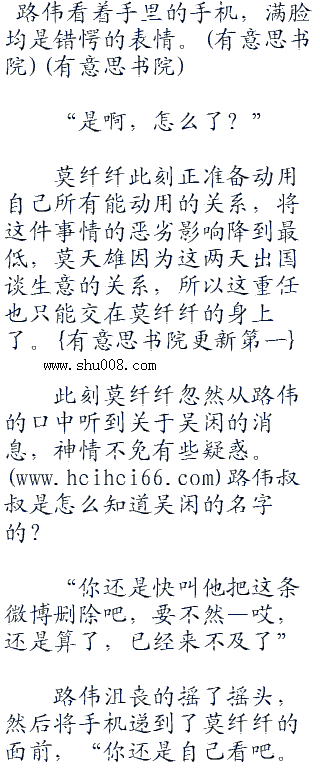 路伟看着手里的手机，满脸
均是错愕的表情。(有意思书
院)(有意思书院)
“是啊，怎么了？”
莫纤纤此刻正准备动用
自己所有能动用的关系，将
这件事情的恶劣影响降到最
低，莫天雄因为这两天出国
谈生意的关系，所以这重任
也只能交在莫纤纤的身上
了。{有意思书院更新第一}
www.shu008.com
此刻莫纤纤忽然从路伟
的口中听到关于吴闲的消
息，神情不免有些疑惑。
(www.hcihci66.com)路伟叔
叔是怎么知道吴闲的名字
的？
“你还是快叫他把这条
微博删除吧，要不然—哎，
还是算了，已经来不及了”
路伟沮丧的摇了摇头，
然后将手机递到了莫纤纤的
面前，“你还是自己看吧。